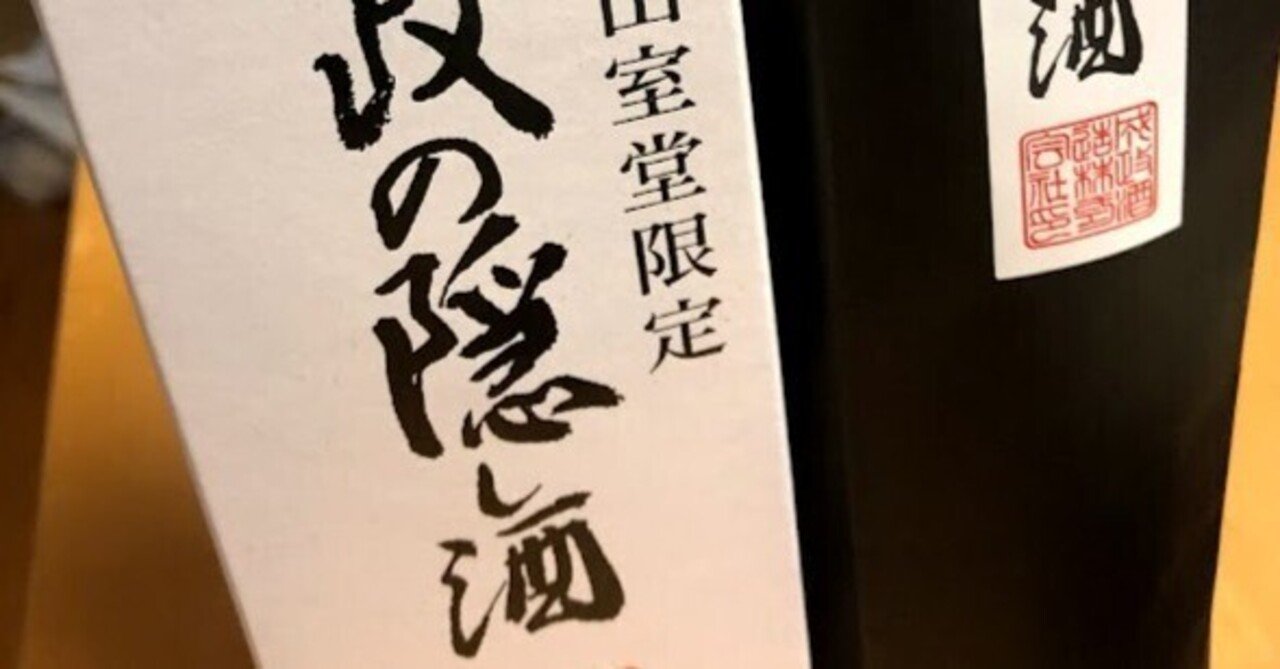 山室堂限定
政の隠し酒
酒
成政酒
造株式
会社印